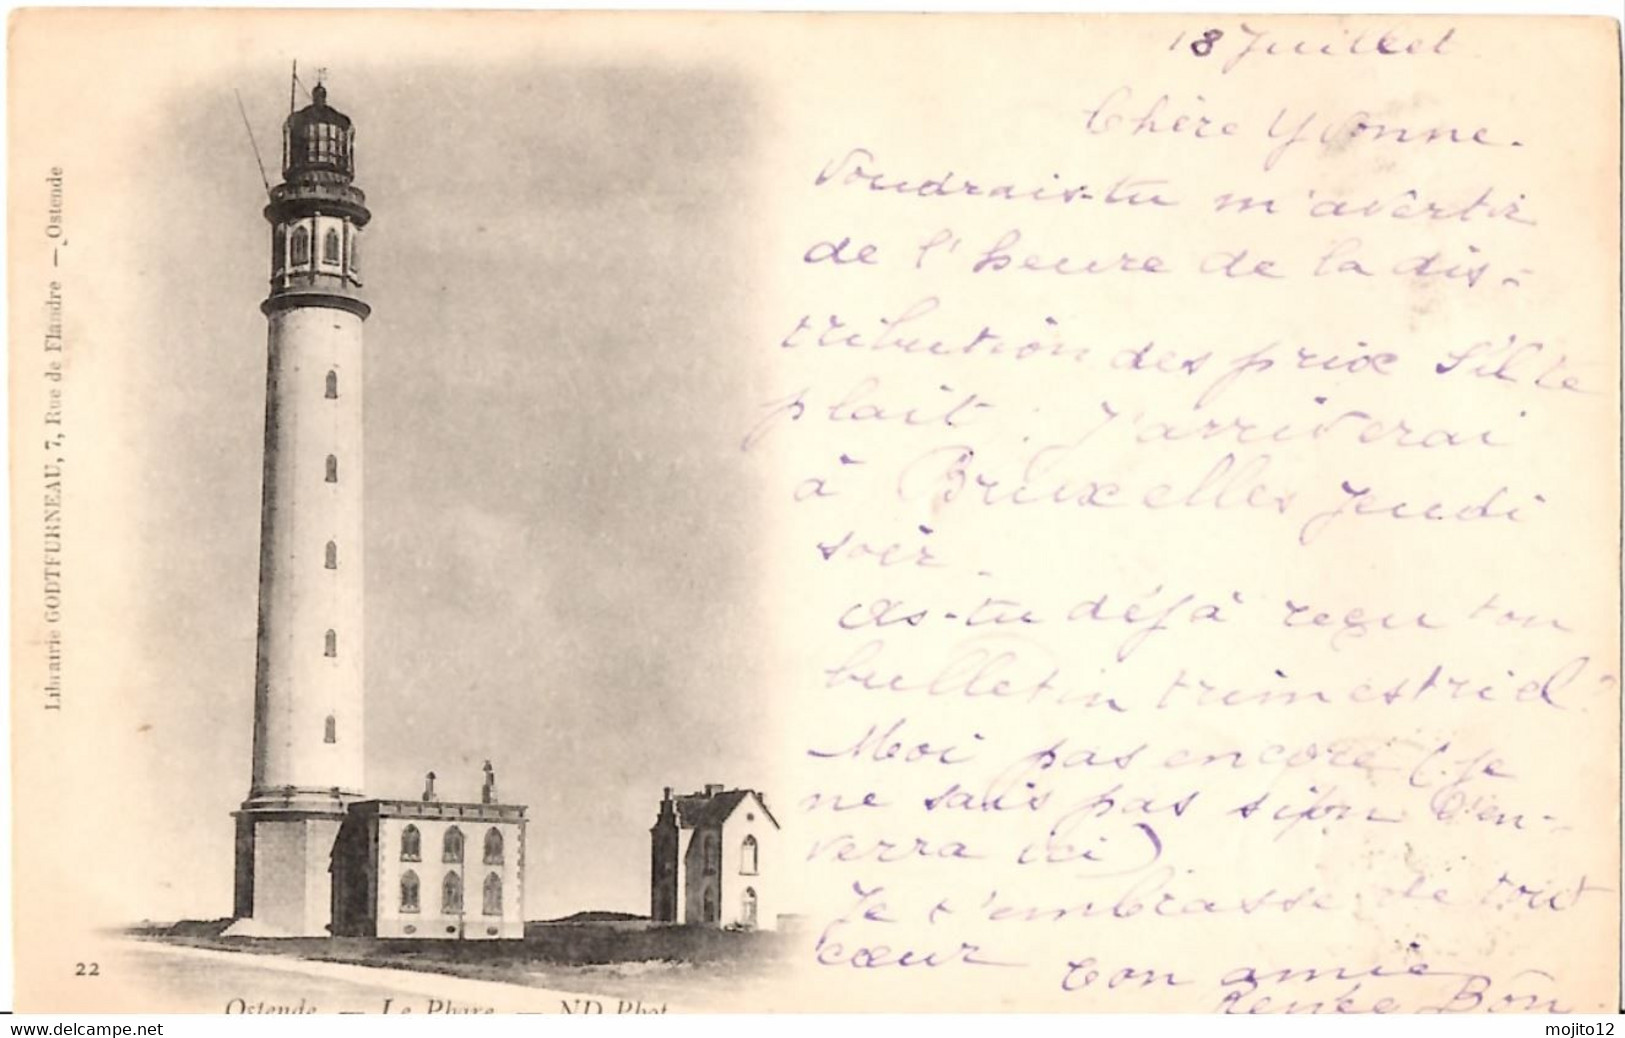 Librairie GODTFURNEAU, 7, Rue de Flandre — Ostende
22
Ostende — Le Phare — ND Phot
18 Juillet
Chère Yvonne.
Voudrais-tu m'avertir
de l'heure de la dis-
tribution des prix S'il te
plaît. J'arriverai
à Bruxelles Jeudi
soir.
As-tu déjà reçu ton
bulletin trimestriel?
Moi pas encore (je
ne sais pas si on l'en-
verra ici)
Je t'embrasse de tout
cœur ton amie
Renée Bon.
mojito12